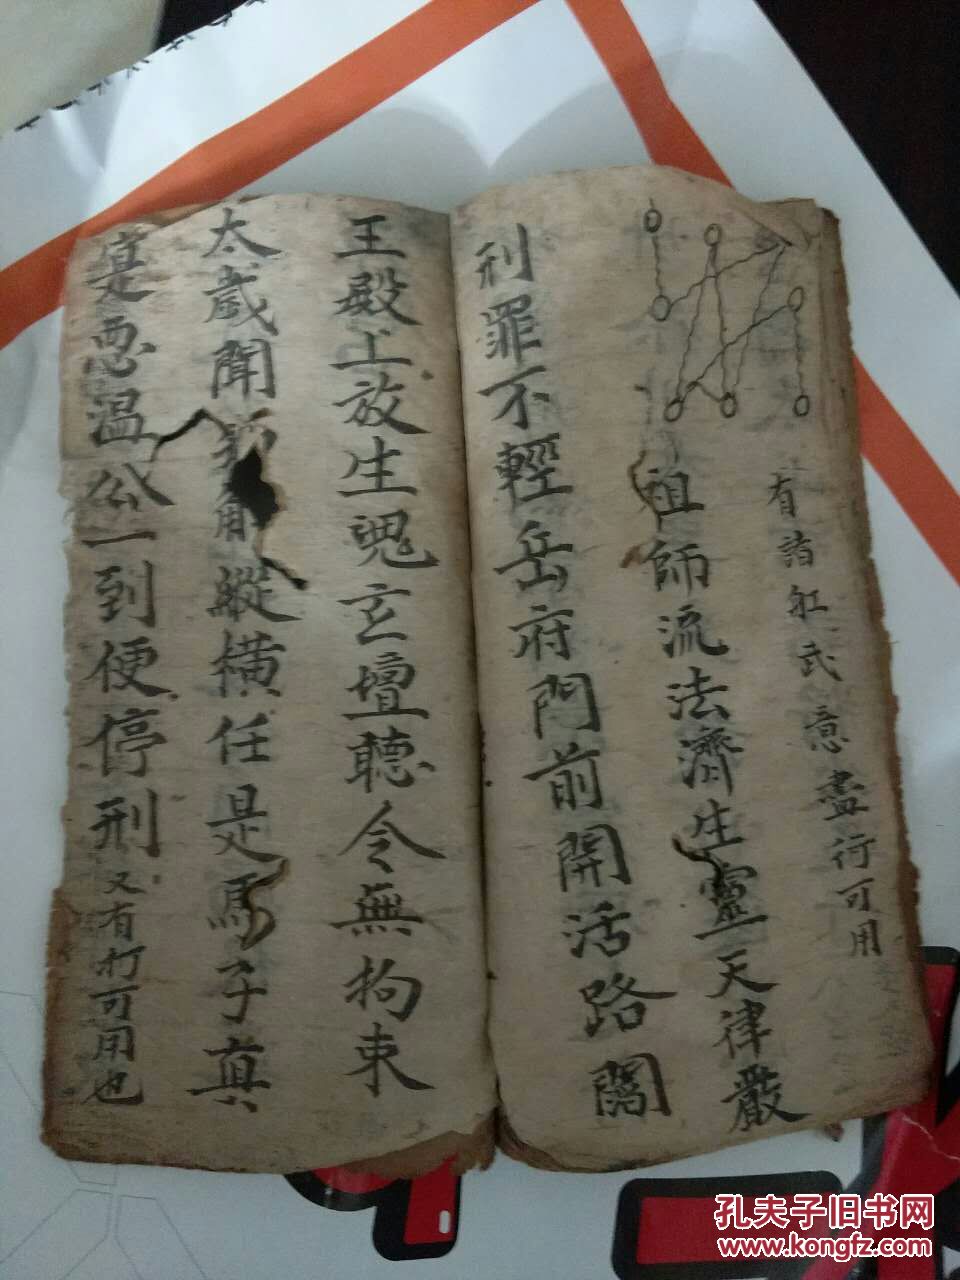 有諸舡武意盡行可用
祖師流法濟生靈天律嚴
刑罪不輕岳府門前開活路關
王殿上放生魂玄壇聽令無拘束
太歲聞 縱橫任是馬子真
寔惡温公一到便停刑又有打可用也
孔夫子旧书网
www.kongfz.com